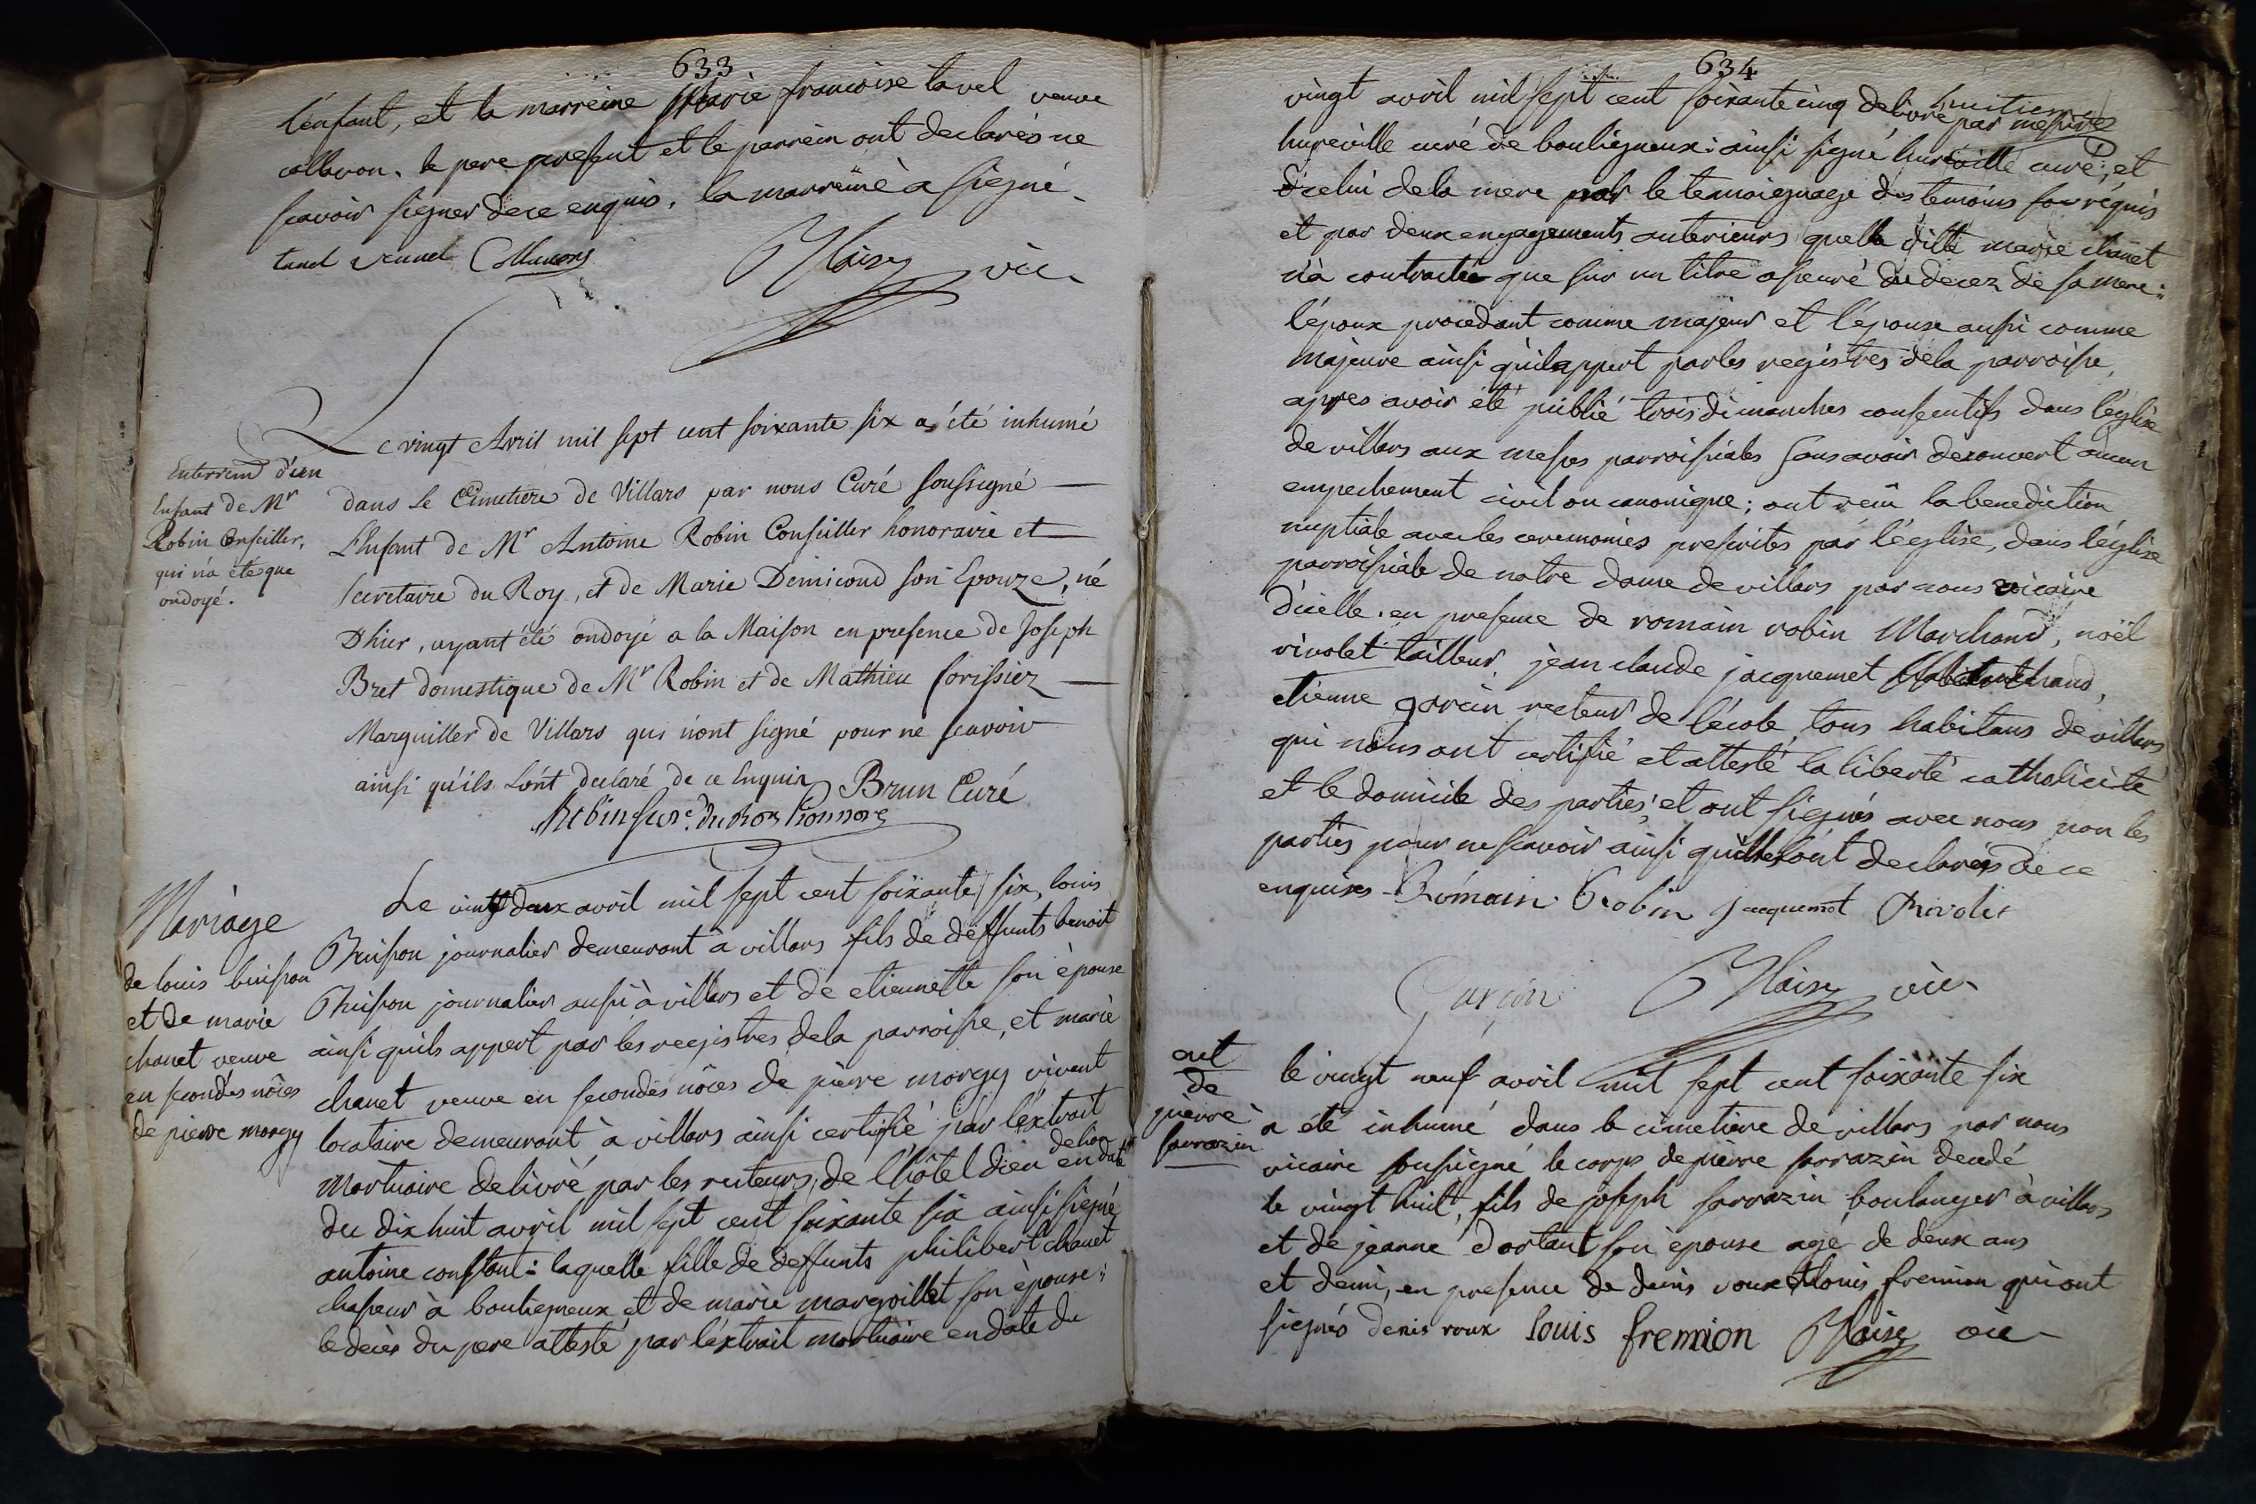 633
l'enfant, et la marreine Marie francoise tavel veuve
colleron. le pere present et le parrein ont declarés ne
scavoir signer de ce enquis. la marreine a signé.
tavel veuve
Blaise vic
Le vingt Avril mil sept cent soixante six a été inhumé
dans le Cimetiere de Villars par nous Curé soussigné
L'Enfant de Mr Antoine Robin Conseiller honoraire et
Secretaire du Roy, et de Marie Demicoud son Epouze, né
D'hier, ayant été ondoyé a la Maison en presence de Joseph
Bret domestique de Mr Robin et de Mathieu forissier
Marguiller de Villars qui n'ont signé pour ne scavoir
ainsi qu'ils L'ont declaré de ce Enquis Brun Curé
Enterremt d'un
Enfant de Mr
Robin Conseiller,
qui n'a été que
ondoyé.
Mariage
de louis buisson
et de marie
chanet veuve
en secondes nôces
de pierre morgy
Le vingt deux avril mil sept cent soixante six, louis
Buisson journalier demeurant à villars fils de deffunts benoit
Buisson journalier aussi à villars et de etiennette son épouse
ainsi quils appert par les registres dela parroisse, et marie
chanet veuve en secondes nôces de pierre morgy vivant
locataire demeurant à villars ainsi certifié par l'extrait
mortuaire delivré par les recteurs de l'hôtel dieu de lion en date
du dix huit avril mil sept cent soixante six ainsi signé
antoine constant: laquelle fille de deffunts philibert chanet
chasseur à bouligneux et de marie margoillet son épouse:
le decès du pere attesté par l'extrait mortuaire en date du
634
vingt avril mil sept cent soixante cinq delivré par messire
hureville curé de bouligneux: ainsi signé hureville curé; et
d'icelui de la mere par le temoignage des temoins sousréquis
et par deux engagements anterieurs quelle ditte marie chanet
n'a contracté que sur un titre asseuré du decez de sa mere:
l'époux procedant comme majeur et l'épouse aussi comme
majeure ainsi qu'il appert par les registres dela parroisse,
apres avoir été publié trois dimanches consecutifs dans l'église
de villars aux messes parroissiales sans avoir decouvert aucun
empechement civil ou canonique; ont recû la benediction
nuptiale avec les ceremonies prescrites par l'église, dans l'église
parroissiale de notre dame de villars par nous vicaire
d'icelle. en presence de romain robin Marchand, noël
rivolet tailleur jean claude jacquemet
etienne garcin recteur de l'école, tous habitans de villars
qui nous ont certifié et attesté la liberté catholicité
et le domicile des parties; et ont signés avec nous non les
parties pour ne scavoir ainsi quelles ont declarés de ce
enquises Romain Robin Jacquemet Rivolet
Garcin Blaise vic
ent
de
pierre
sarrazin
le vingt neuf avril mil sept cent soixante six
a été inhumé dans le cimetiere de villars par nous
vicaire soussigné le corps de pierre sarrazin decedé
le vingt huit, fils de joseph sarrazin boulanger à villars
et de jeanne dortant son épouse agé de deux ans
et demi, en presence de denis roux et louis fremion qui ont
signés denis roux louis fremion Blaise vic